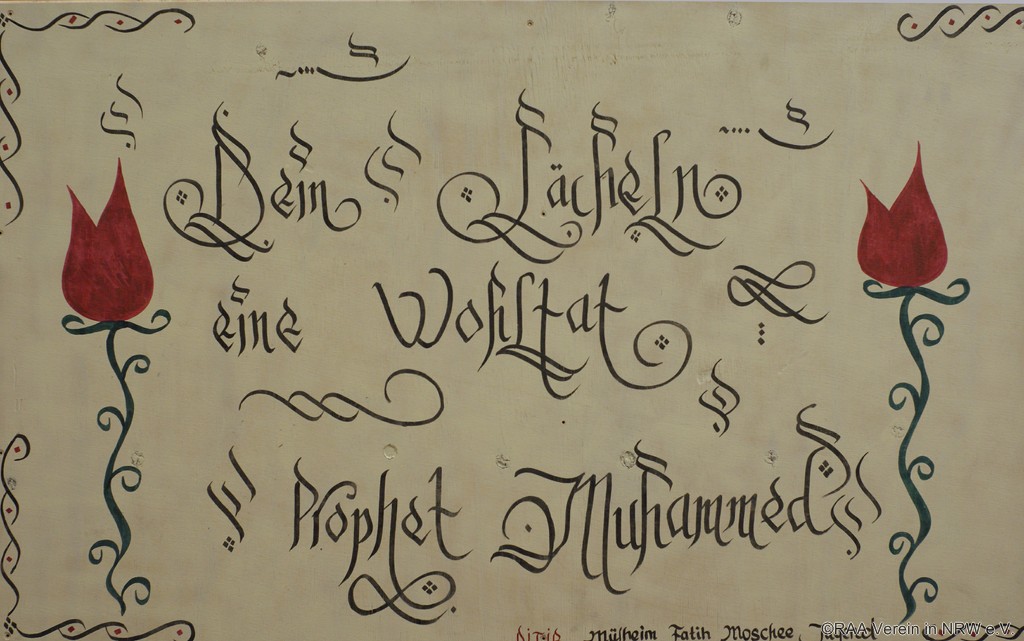 Dein Lächeln
eine Wohltat
Prophet Muhammed
Mülheim Fatih Moschee,
©RAA Verein in NRW e.V.